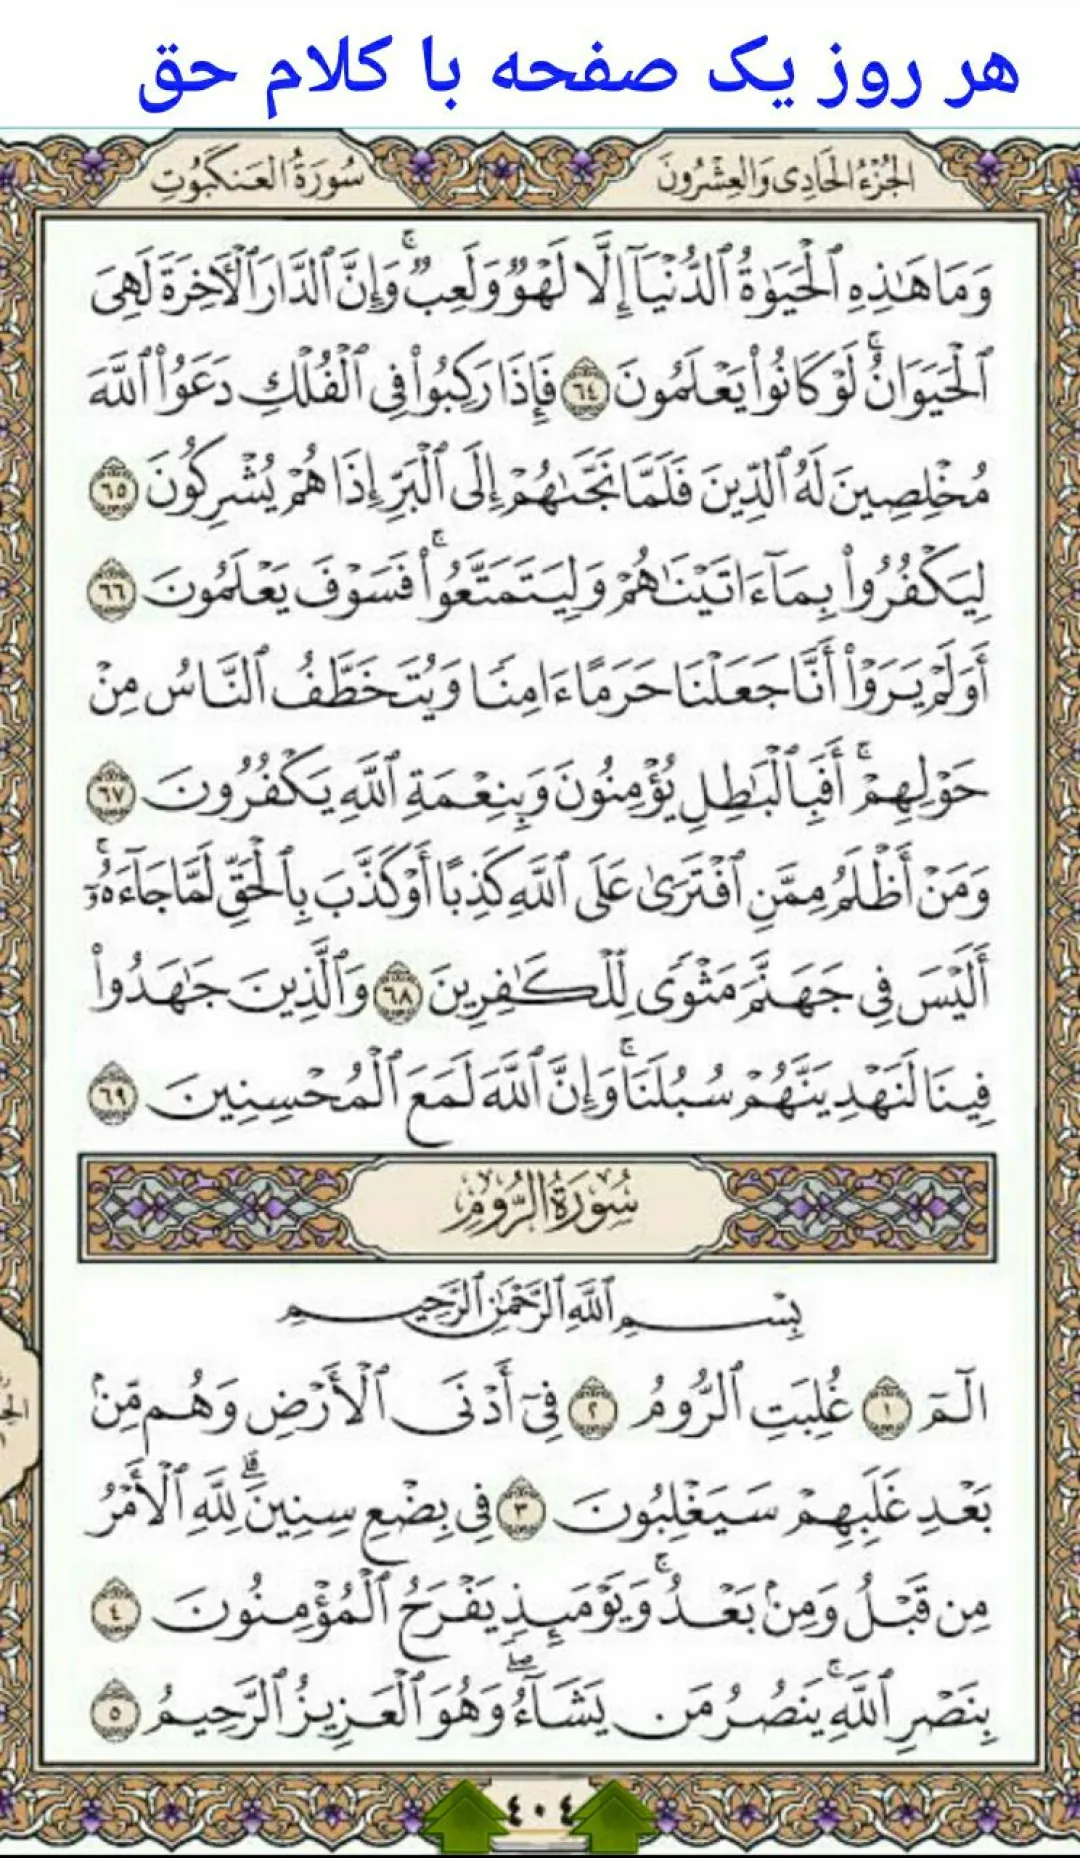 هر روز یک صفحه با کلام حق
الجُزْءُ الحَادِى وَالعِشْرُونَ
سُورَةُ العَنكَبُوتِ
وَمَا هَٰذِهِ ٱلْحَيَوٰةُ ٱلدُّنْيَآ إِلَّا لَهْوٌ وَلَعِبٌ ۚ وَإِنَّ ٱلدَّارَ ٱلْأَخِرَةَ لَهِىَ
ٱلْحَيَوَانُ ۚ لَوْ كَانُوا۟ يَعْلَمُونَ ٦٤ فَإِذَا رَكِبُوا۟ فِى ٱلْفُلْكِ دَعَوُا۟ ٱللَّهَ
مُخْلِصِينَ لَهُ ٱلدِّينَ فَلَمَّا نَجَّىٰهُمْ إِلَى ٱلْبَرِّ إِذَا هُمْ يُشْرِكُونَ ٦٥
لِيَكْفُرُوا۟ بِمَآ ءَاتَيْنَٰهُمْ وَلِيَتَمَتَّعُوا۟ ۚ فَسَوْفَ يَعْلَمُونَ ٦٦
أَوَلَمْ يَرَوْا۟ أَنَّا جَعَلْنَا حَرَمًا ءَامِنًا وَيُتَخَطَّفُ ٱلنَّاسُ مِنْ
حَوْلِهِمْ ۚ أَفَبِٱلْبَٰطِلِ يُؤْمِنُونَ وَبِنِعْمَةِ ٱللَّهِ يَكْفُرُونَ ٦٧
وَمَنْ أَظْلَمُ مِمَّنِ ٱفْتَرَىٰ عَلَى ٱللَّهِ كَذِبًا أَوْ كَذَّبَ بِٱلْحَقِّ لَمَّا جَآءَهُۥٓ ۚ
أَلَيْسَ فِى جَهَنَّمَ مَثْوًى لِّلْكَٰفِرِينَ ٦٨ وَٱلَّذِينَ جَٰهَدُوا۟
فِينَا لَنَهْدِيَنَّهُمْ سُبُلَنَا ۚ وَإِنَّ ٱللَّهَ لَمَعَ ٱلْمُحْسِنِينَ ٦٩
سُورَةُ الرُّومِ
بِسْمِ ٱللَّهِ ٱلرَّحْمَٰنِ ٱلرَّحِيمِ
الٓمٓ ١ غُلِبَتِ ٱلرُّومُ ٢ فِىٓ أَدْنَى ٱلْأَرْضِ وَهُم مِّنۢ
بَعْدِ غَلَبِهِمْ سَيَغْلِبُونَ ٣ فِى بِضْعِ سِنِينَ ۗ لِلَّهِ ٱلْأَمْرُ
مِن قَبْلُ وَمِنۢ بَعْدُ ۚ وَيَوْمَئِذٍ يَفْرَحُ ٱلْمُؤْمِنُونَ ٤
بِنَصْرِ ٱللَّهِ ۚ يَنصُرُ مَن يَشَآءُ ۖ وَهُوَ ٱلْعَزِيزُ ٱلرَّحِيمُ ٥
٤٠٤